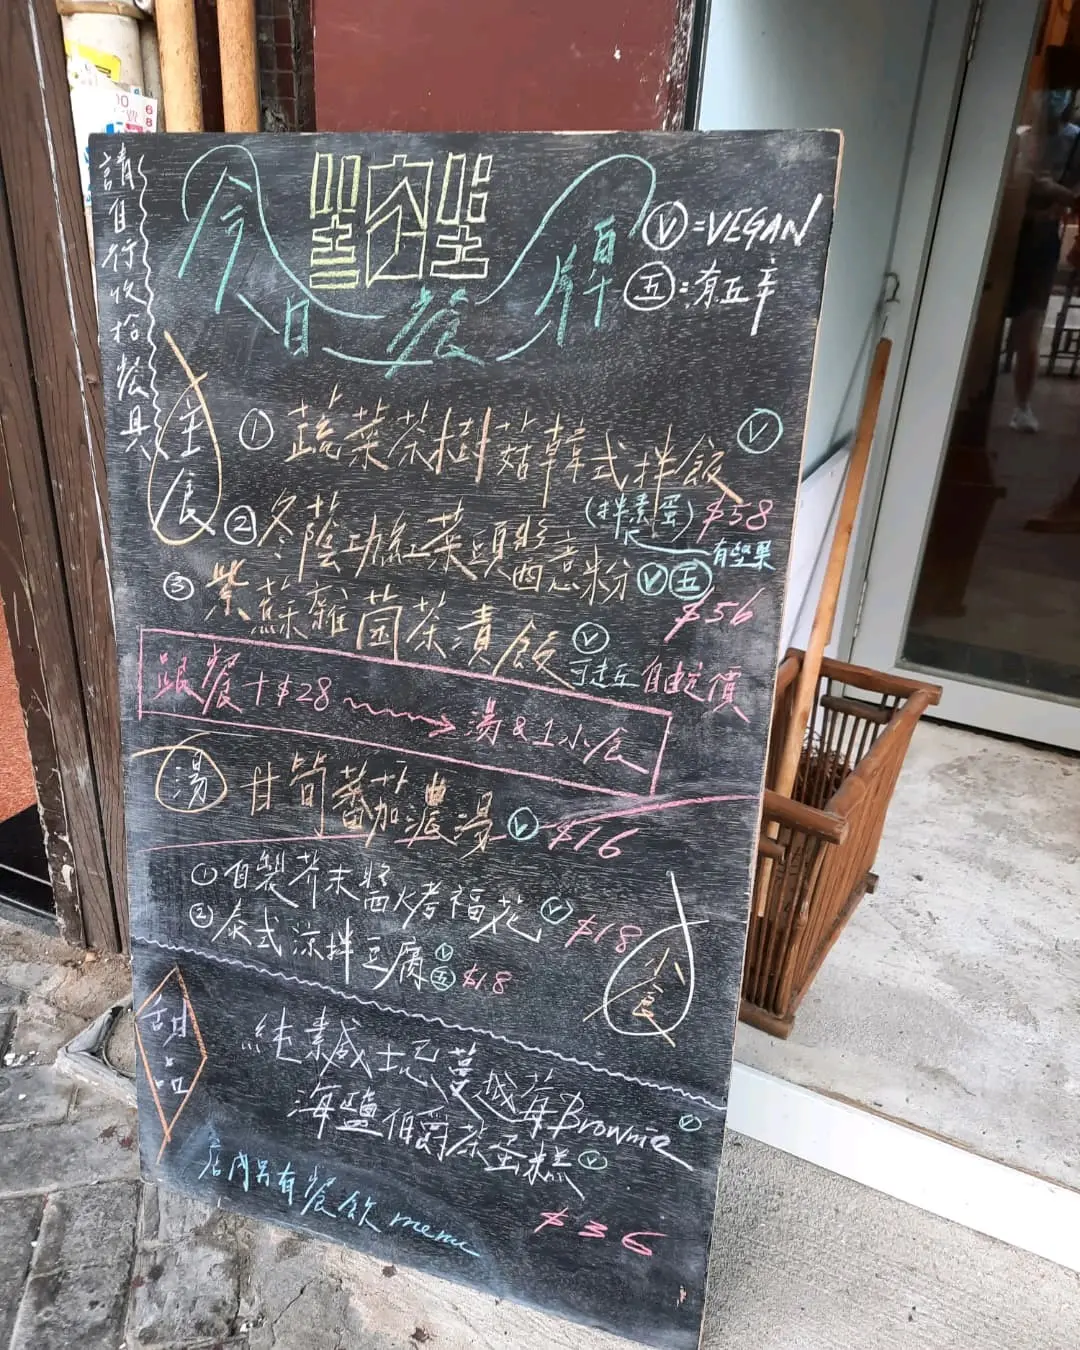 請自行收拾餐具
今日餐牌
Ⓥ=VEGAN
㊄:有五辛
主食
① 蔬菜茶樹菇韓式拌飯 Ⓥ
(拌素蛋) $58
有堅果
② 冬蔭功紅菜頭醬意粉 Ⓥ㊄
$56
③ 紫蘇雜菌茶漬飯 Ⓥ
可走五 自由定價
跟餐+$28 → 湯&1小食
湯 甘筍蕃茄濃湯 Ⓥ $16
① 自製芥末醬烤福花 Ⓥ $18
② 泰式涼拌豆腐 Ⓥ㊄ $18
小食
甜品
純素威士忌蔓越莓Brownie Ⓥ
海鹽伯爵茶蛋糕 Ⓥ
$36
店內另有餐飲menu